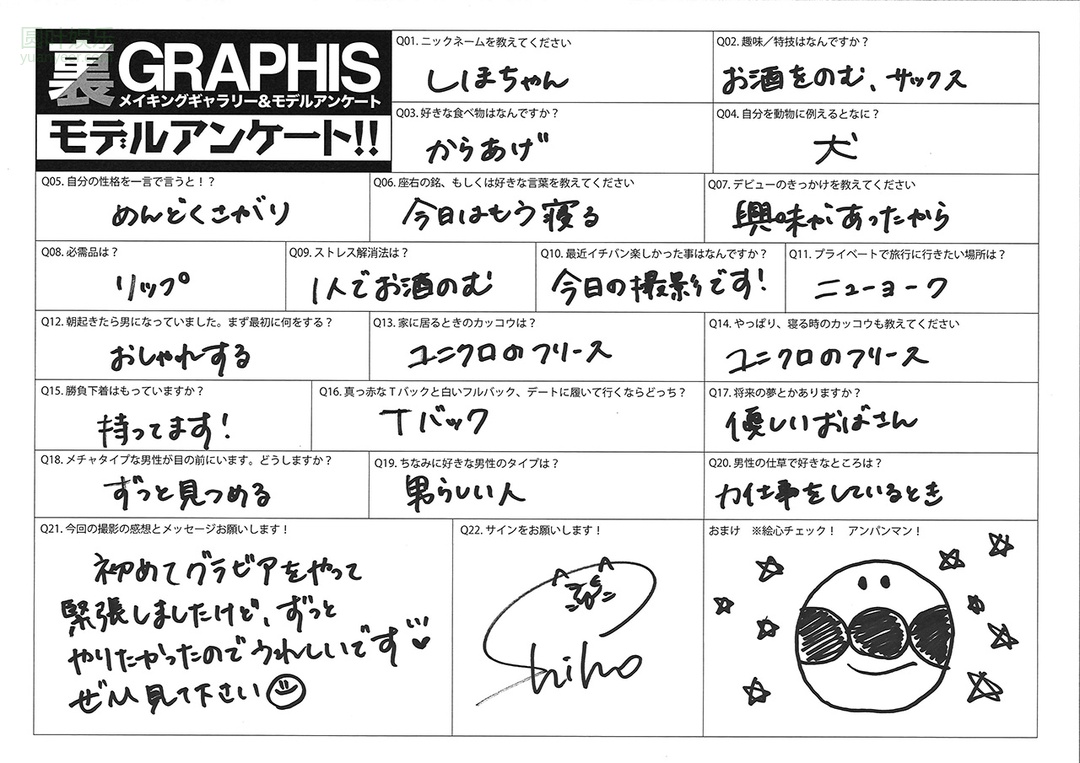 圆叶娱乐
裏GRAPHIS
メイキングギャラリー&モデルアンケート
モデルアンケート!!
Q01. ニックネームを教えてください
しほちゃん
Q02. 趣味／特技はなんですか？
お酒をのむ、サックス
Q03. 好きな食べ物はなんですか？
からあげ
Q04. 自分を動物に例えるとなに？
犬
Q05. 自分の性格を一言で言うと！？
めんどくさがり
Q06. 座右の銘、もしくは好きな言葉を教えてください
今日はもう寝る
Q07. デビューのきっかけを教えてください
興味があったから
Q08. 必需品は？
リップ
Q09. ストレス解消法は？
1人でお酒のむ
Q10. 最近イチバン楽しかった事はなんですか？
今日の撮影です！
Q11. プライベートで旅行に行きたい場所は？
ニューヨーク
Q12. 朝起きたら男になっていました。まず最初に何をする？
おしゃれする
Q13. 家に居るときのカッコウは？
ユニクロのフリース
Q14. やっぱり、寝る時のカッコウも教えてください
ユニクロのフリース
Q15. 勝負下着はもっていますか？
持ってます！
Q16. 真っ赤なＴバックと白いフルバック、デートに履いて行くならどっち？
Tバック
Q17. 将来の夢とかありますか？
優しいおばさん
Q18. メチャタイプな男性が目の前にいます。どうしますか？
ずっと見つめる
Q19. ちなみに好きな男性のタイプは？
男らしい人
Q20. 男性の仕草で好きなところは？
力仕事をしているとき
Q21. 今回の撮影の感想とメッセージお願いします！
初めてグラビアをやって
緊張しましたけど、ずっと
やりたかったのでうれしいです♥
ぜひ見て下さい
Q22. サインをお願いします！
Shiho
おまけ　※絵心チェック！　アンパンマン！